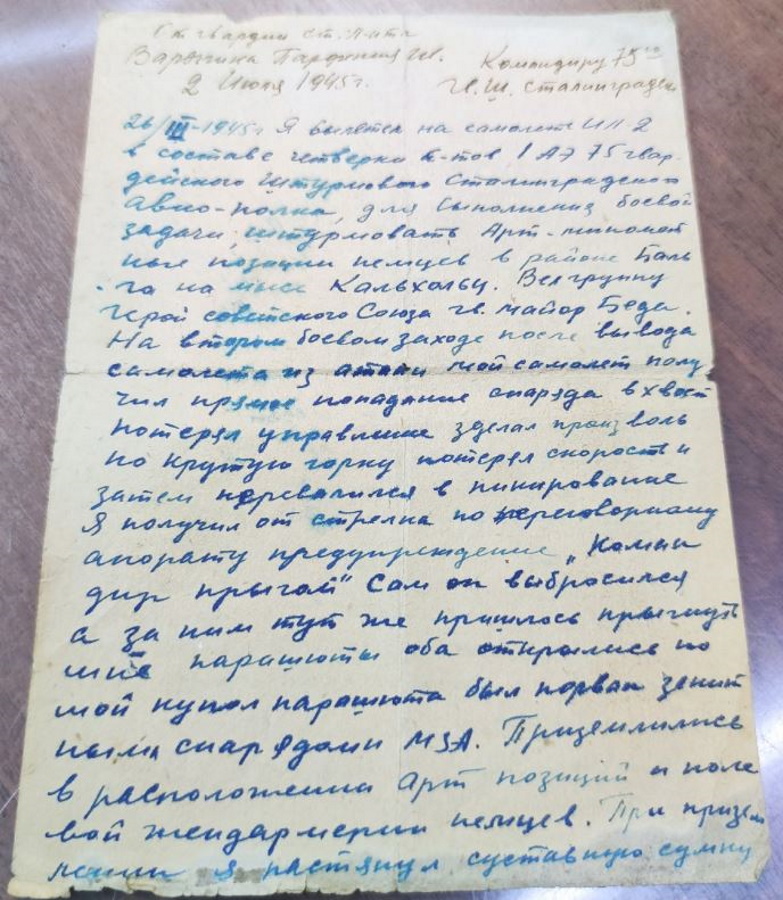 От гвардии ст. л-та
Варенника Парфения Ив.
2 Июля 1945 г.
Командиру 75го
Гв. Ш. Сталинградск
26/III-1945 г Я вылетел на самолете ИЛ-2
в составе четверки с-тов 1 АЭ 75 гвар-
дейского Штурмового Сталинградского
авио-полка, для выполнения боевой
задачи, штурмовать Арт-миномет
ные позиции немцев в районе Баль
-га на мысе Кальхольц. Вел группу
герой советского Союза гв. майор Беда.
На втором боевом заходе после вывода
самолета из атаки мой самолет полу
чил прямое попадание снаряда в хвост
потерял управление зделал произволь
но крутую горку потерял скорость и
затем перевалился в пикирование
Я получил от стрелка по переговорному
апорату предупреждение „Коман
дир прыгай" Сам он выбросился
а за ним тут же пришлось прыгнуть
мне парашюты оба открылись но
мой купол парашюта был порван зенит
ными снарядами МЗА. Приземлились
в расположении Арт позиций и поле
вой жендармерии немцев. При призем
лении я растянул суставную сумку